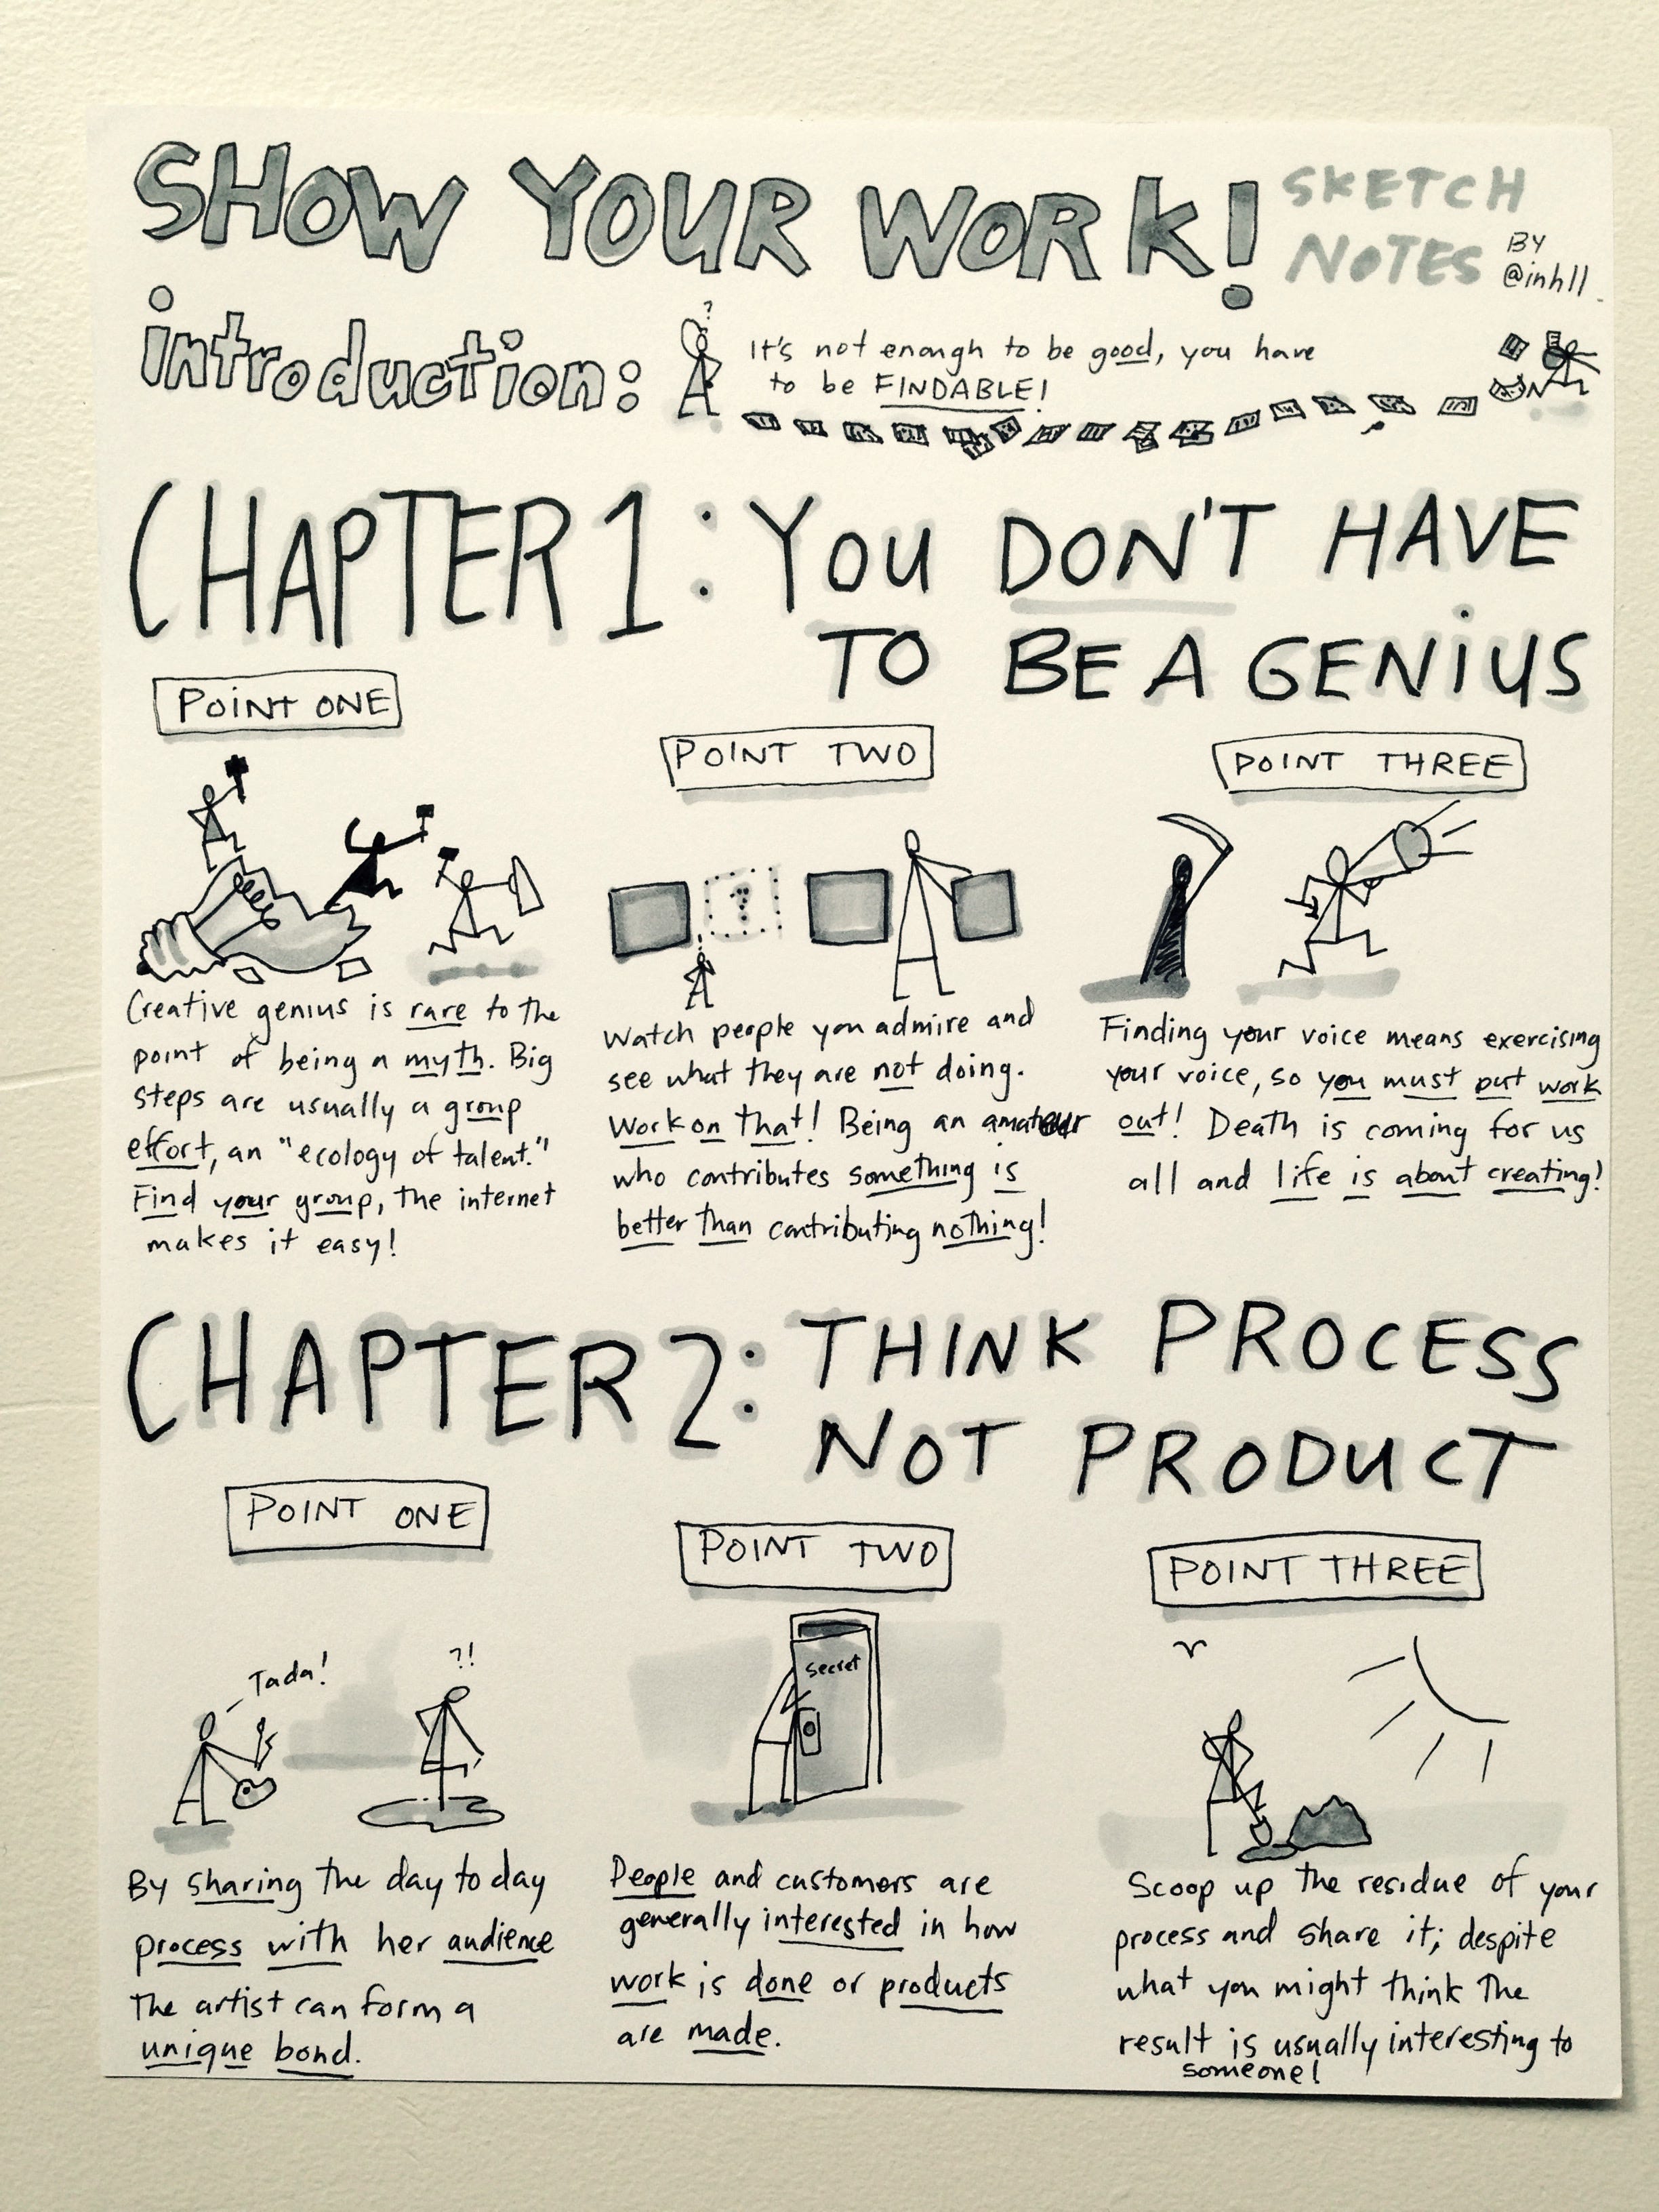 SHOW YOUR WORK!
SKETCH
NOTES
BY
@inhll
introduction:
?
It's not enough to be good, you have
to be FINDABLE!
CHAPTER 1: YOU DON'T HAVE
TO BE A GENIUS
POINT ONE
Creative genius is rare to the
point of being a myth. Big
steps are usually a group
effort, an "ecology of talent."
Find your group, the internet
makes it easy!
POINT TWO
?
Watch people you admire and
see what they are not doing.
Work on that! Being an amateur
who contributes something is
better than contributing nothing!
POINT THREE
Finding your voice means exercising
your voice, so you must put work
out! Death is coming for us
all and life is about creating!
CHAPTER 2: THINK PROCESS
NOT PRODUCT
POINT ONE
Tada!
?!
By sharing the day to day
process with her audience
the artist can form a
unique bond.
POINT TWO
Secret
People and customers are
generally interested in how
work is done or products
are made.
POINT THREE
Scoop up the residue of your
process and share it; despite
what you might think the
result is usually interesting to
someone!